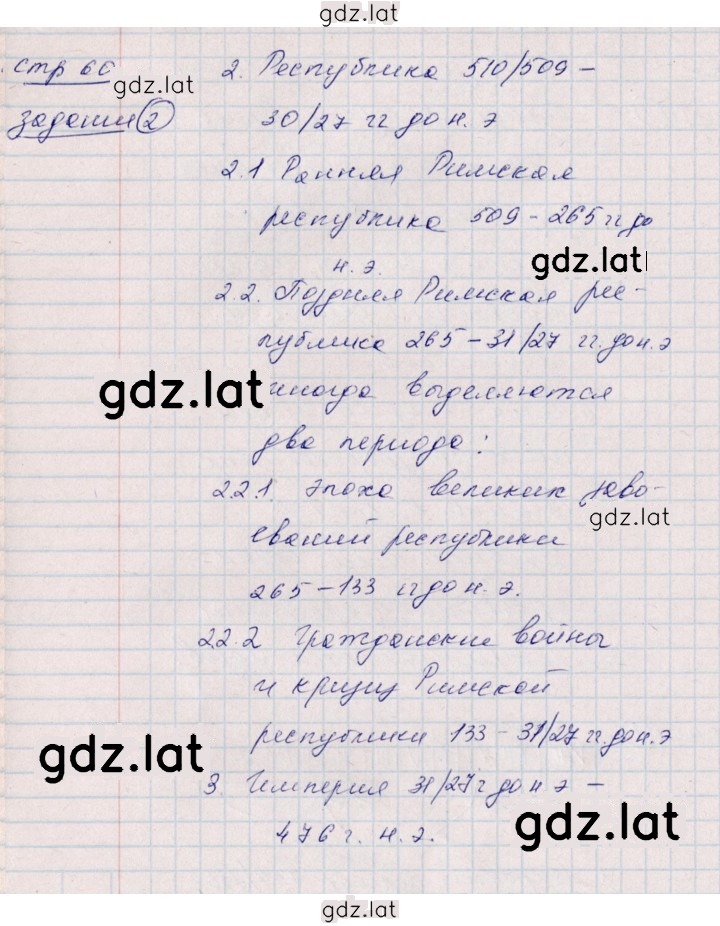 gdz.lat
стр 66
gdz.lat
задание 2
2. Республика 510/509 –
30/27 гг до н. э
2.1 Ранняя Римская
республика 509 - 265 гг до
н. э.
gdz.lat
2.2. Поздняя Римская рес-
публика 265 – 31/27 гг. до н. э
gdz.lat
иногда выделяются
два периода:
2.2.1. Эпоха великих заво-
gdz.lat
еваний республики
265 – 133 гг до н. э.
2.2.2 Гражданские войны
и кризис Римской
республики 133 – 31/27 гг. до н. э
gdz.lat
3. Империя 31/27 г до н э –
476 г. н. э.
gdz.lat
gdz.lat